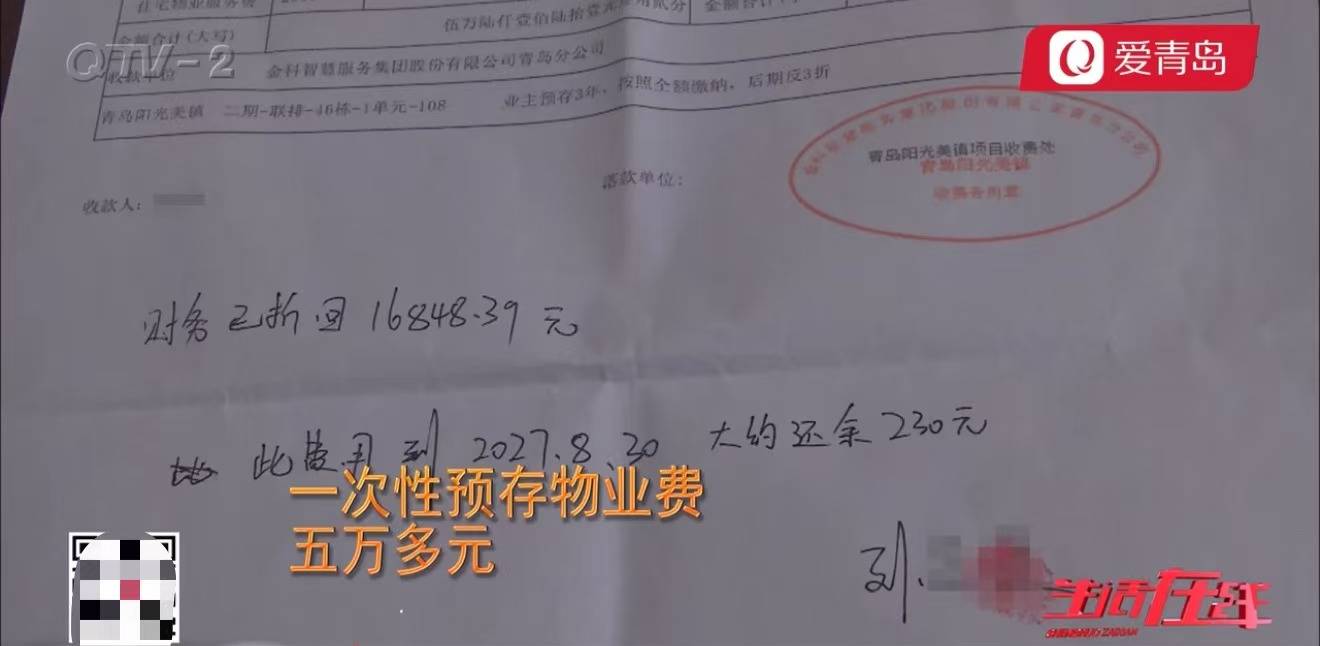 住宅物业服务费
金额合计(大写)
伍万陆仟壹佰陆拾壹元
贰分
金额合计
QTV-2
爱青岛
收款单位
金科智慧服务集团股份有限公司青岛分公司
青岛阳光美镇 二期-联排-46栋-1单元-108 业主预存3年,按照全额缴纳,后期反3折
青岛阳光美镇项目收费处
青岛阳光美镇
收费专用章
收款人:
落款单位:
财务已折回 16848.39 元
此费用到 2027.8.30 大约还余230元
一次性预存物业费
五万多元
刘
生活在线
SHENGHUO ZAIXIAN